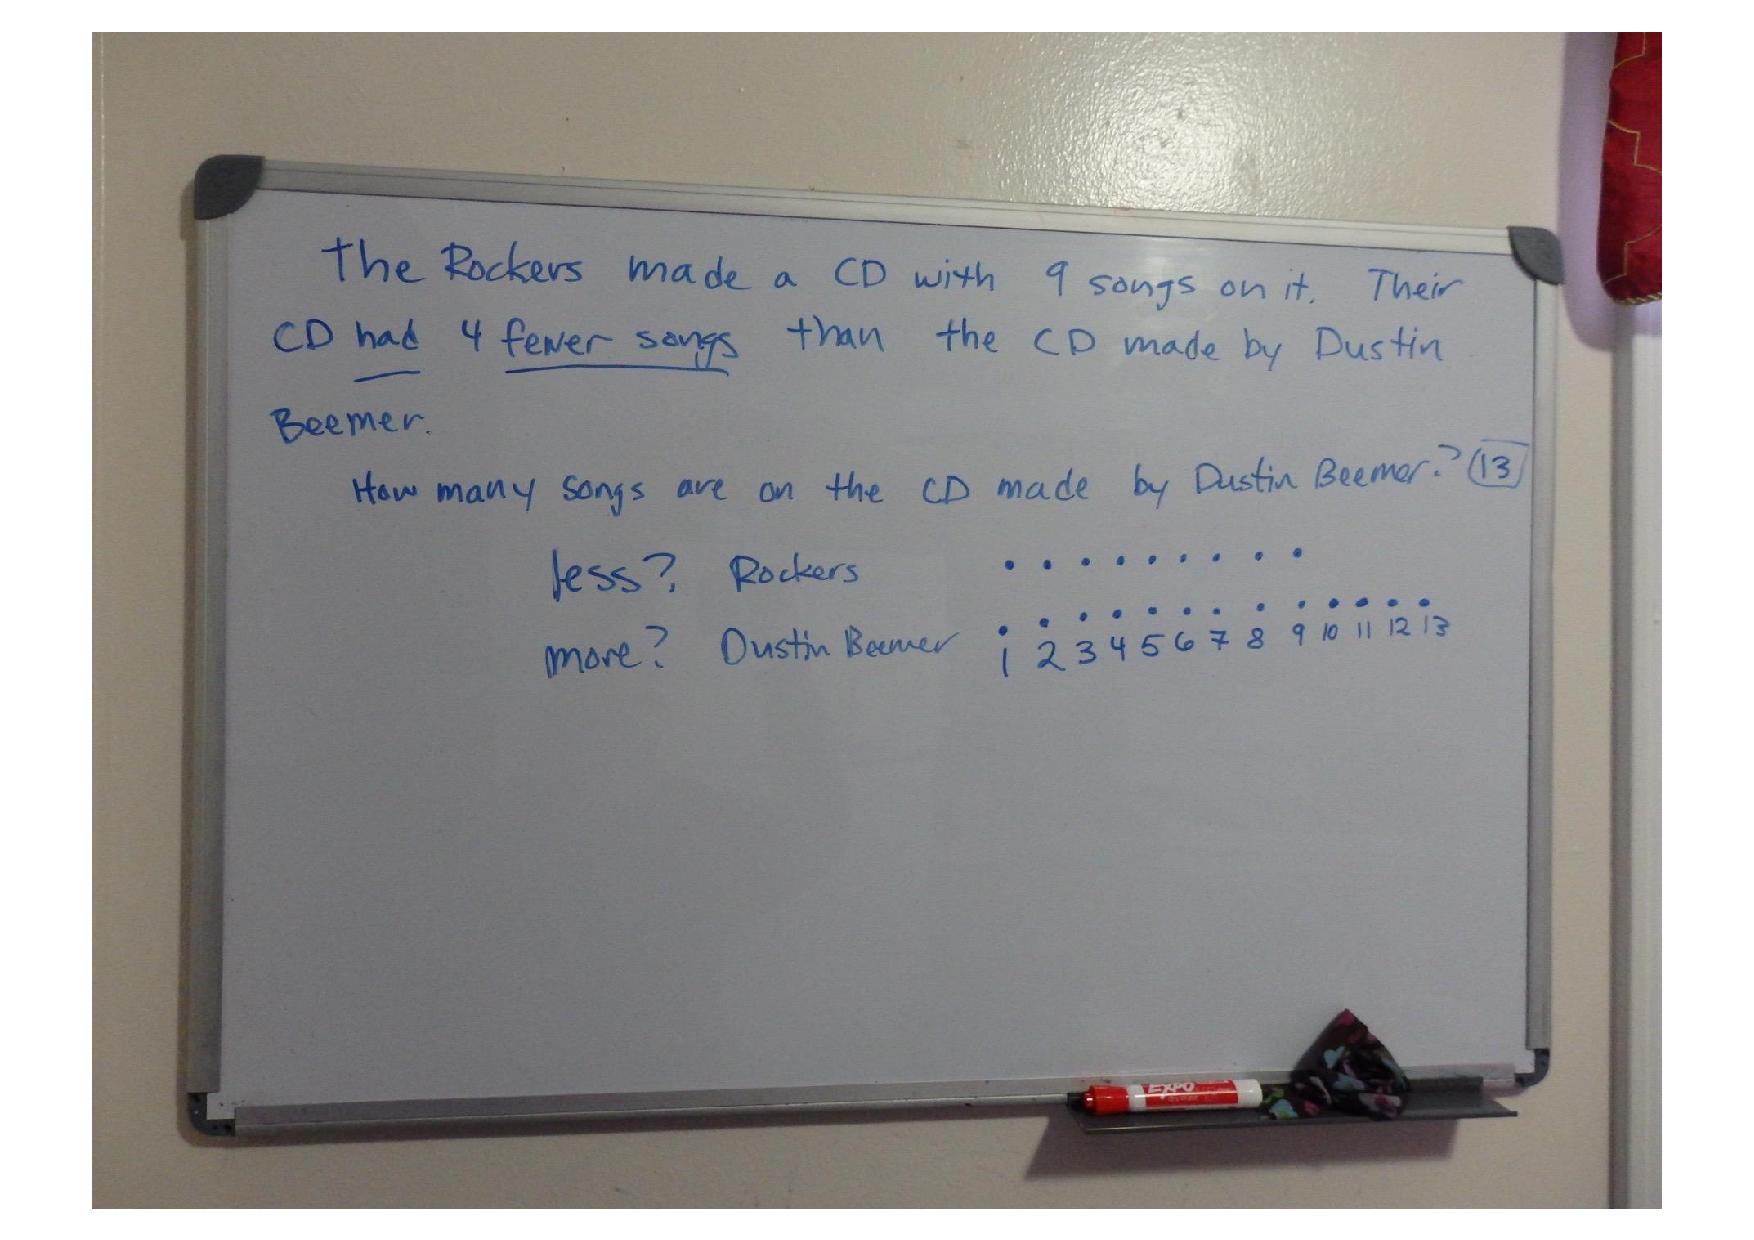 The Rockers made a CD with 9 songs on it. Their
CD had 4 fewer songs than the CD made by Dustin
Beemer.
How many songs are on the CD made by Dustin Beemer? 13
less? Rockers
more? Dustin Beemer
1 2 3 4 5 6 7 8 9 10 11 12 13
EXPO